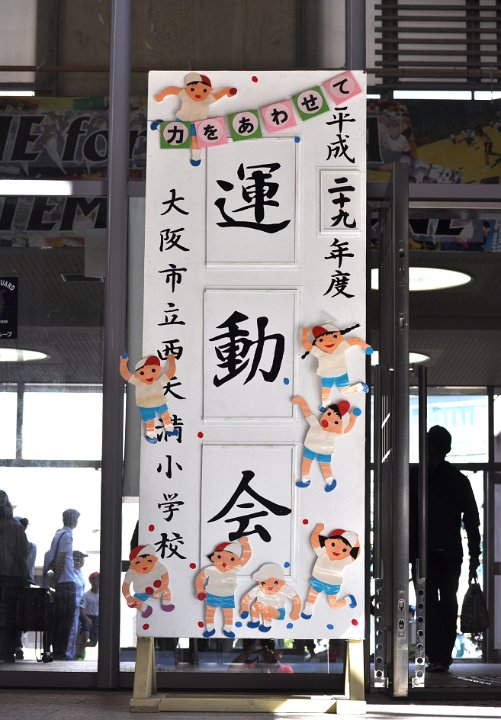 力をあわせて
平成二十九年度
運動会
大阪市立西天満小学校